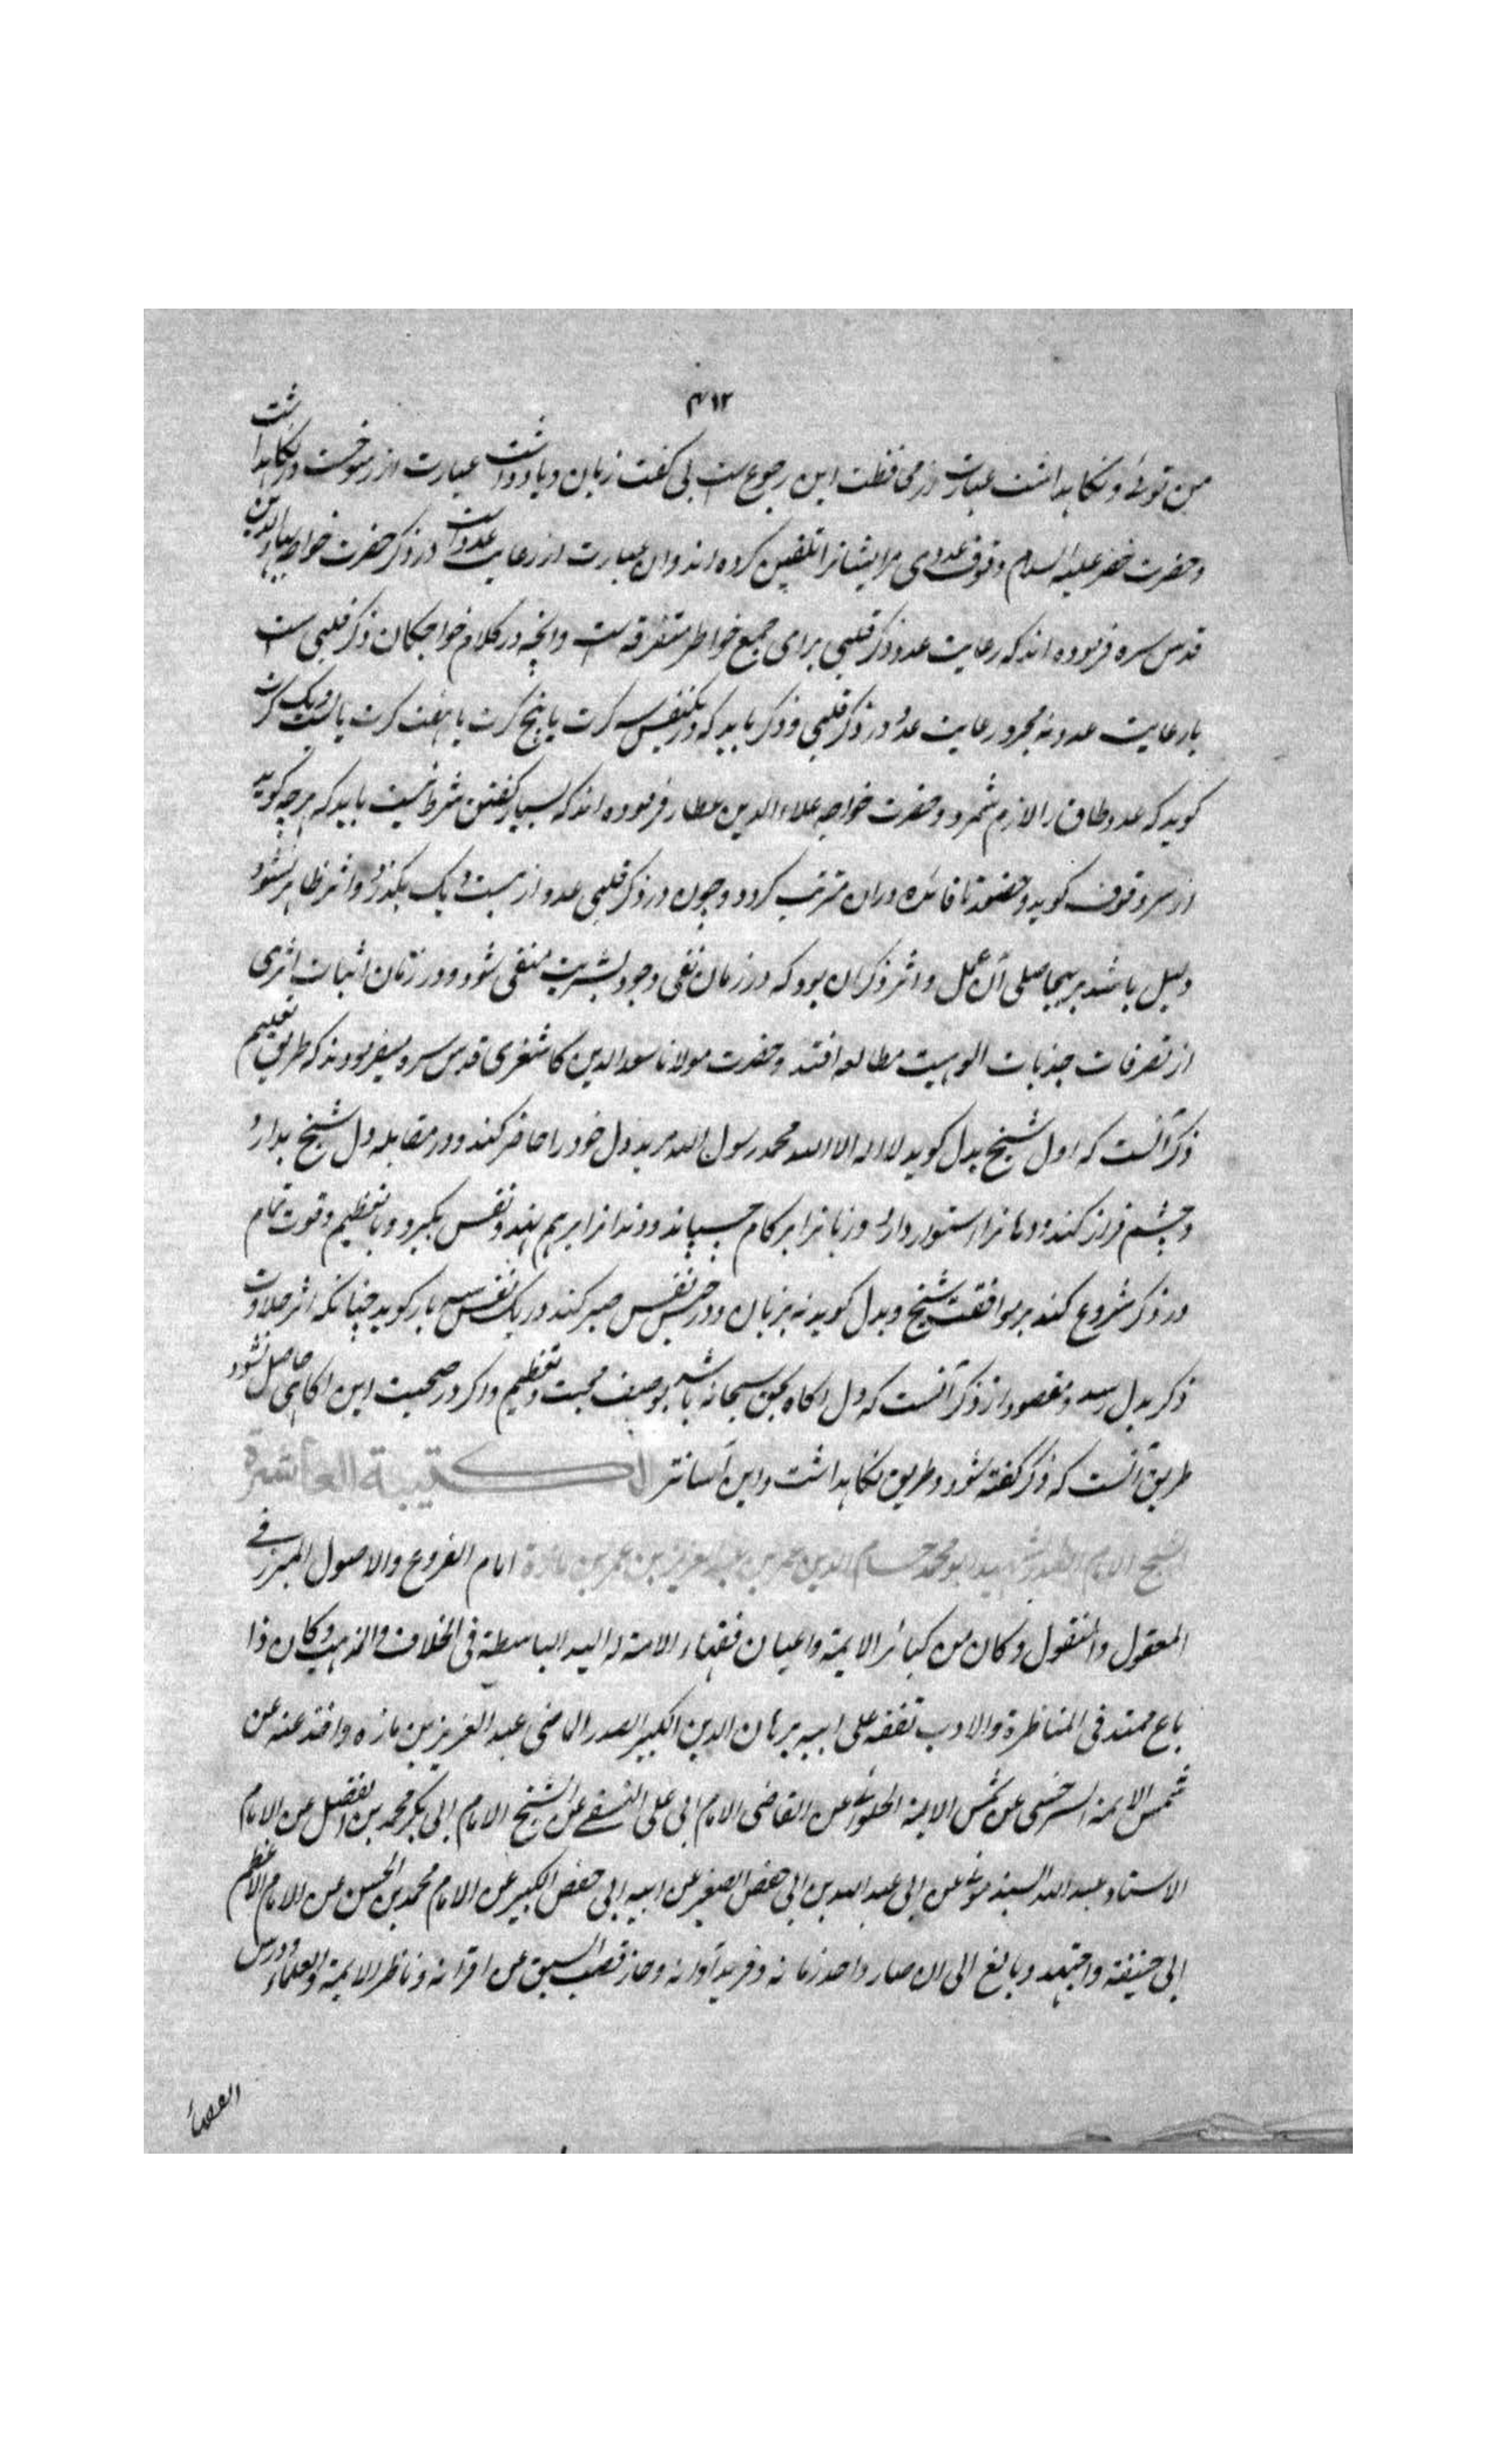 ۴۱۲
من توئی و نگاهداشت عبارت از محافظت این رجوع است بی گفت زبان و یادداشت عبارت از رسوخست در نگاهداشت
و حضرت خضر علیه السلام وقوف عددی مر ایشانرا تلقین کرده اند وان عبارت از رعایت عددست در ذکر حضرت خواجه بهاء الدین
قدس سره فرموده اند که رعایت عدد در ذکر قلبی برای جمع خواطر متفرقه است وانچه در کلام خواجکان ذکر قلبی است
با رعایت عدد نه مجرد رعایت عدد در ذکر قلبی و ذکر باید که در یکنفس سه کرت یا پنج کرت یا هفت کرت یا بیست ویک کرت
کوید که عدد طاق را لازم شمرد و حضرت خواجه علاء الدین عطار فرموده اند که بسیار کفتن شرط نیست باید که هرچه کوید
از سر وقوف کوید و حضور تا فائده دران مترتب کردد و چون در ذکر قلبی عدد از بیست و یک بگذرد واثر ظاهر نشود
دلیل باشد بر بیحاصلی آن عمل و اثر ذکر ان بود که در زمان نفی وجود بشریت منفی شود و در زمان اثبات اثری
از تصرفات جذبات الوهیت مطالعه افتد و حضرت مولانا سعد الدین کاشغری قدس سره میفرمودند که طریق تعلیم
ذکر آنست که اول شیخ بدل کوید لا اله الا الله محمد رسول الله مرید دل خود را حاضر کند و در مقابله دل شیخ بدارد
و چشم فراز کند و دهانرا استوار دارد و زبانرا بر کام چسپاند و دندانرا برهم نهد و نفس بکیرد و با تعظیم و قوت تمام
در ذکر شروع کند بر موافقت شیخ و بدل کوید نه بزبان و در حبس نفس صبر کند در یک نفس سه بار کوید چنانکه اثر حلاوت
ذکر بدل رسد و مقصود از ذکر آنست که دل اکاه بحق سبحانه باشد بوصف محبت و تعظیم و اکر در صحبت این اکاهی حاصل نشود
طریق آنست که ذکر کفته شود و طریق نکاهداشت و این آسانتر الكتيبة العاشرة
الشيخ الامام الصدر الشهيد ابو محمد حسام الدين عمر بن عبد العزيز بن عمر بن مازة امام الفروع والاصول المبرز في
المعقول والمنقول وكان من كبائر الايمة واعيان فقهاء الامة له اليد الباسطة فى الخلاف والمذهب وكان ذا
باع ممتد فى المناظرة والادب تفقه على ابيه برهان الدين الكبير الصدر الماضى عبد العزيز بن مازه واخذ عنه عن
شمس الايمة السرخسى عن شمس الايمة الحلوائى عن القاضى الامام ابى على النسفى عن الشيخ الامام ابى بكر محمد بن الفضل عن الامام
الاستاد عبد الله السبذمونى عن ابى عبد الله بن ابى حفص الصغير عن ابيه ابى حفص الكبير عن الامام محمد بن الحسن عن الامام الاعظم
ابى حنيفة واجتهد وبالغ الى ان صار واحد زمانه وفريد آوانه وحاز قصب السبق عن اقرانه وناظر الايمة والعلماء ودرس